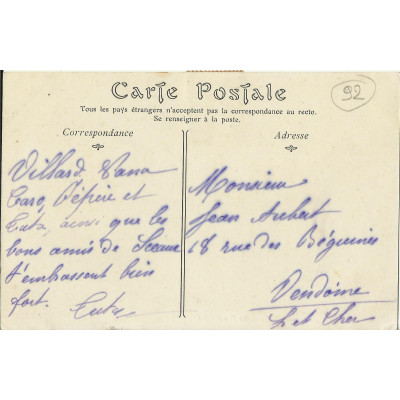 Carte Postale
92
Tous les pays étrangers n'acceptent pas la correspondance au recto.
Se renseigner à la poste.
Correspondance
Adresse
Villard
et
ainsi que les
bons amis de Sceaux
t'embrassent bien
fort.
Monsieur
Jean Aubert
18 rue des Béguines
Vendôme
L et Cher